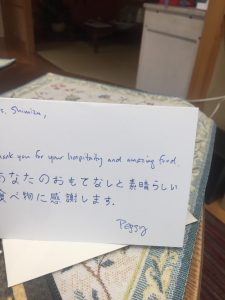 s. Shimizu,
hank you for your hospitality and amazing food.
あなたのおもてなしと素晴らしい
食べ物に感謝します.
Peggy